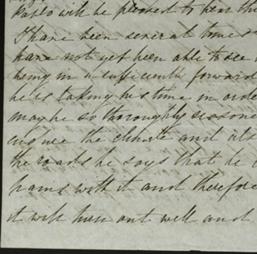 will be pleased to hear the
I have been several times
have not yet been able to see
being in a sufficiently forward
he is taking his time in order
may be so thoroughly seasoned
the climate and
the roads he says that he
harm with it and therefore
it will turn out well and